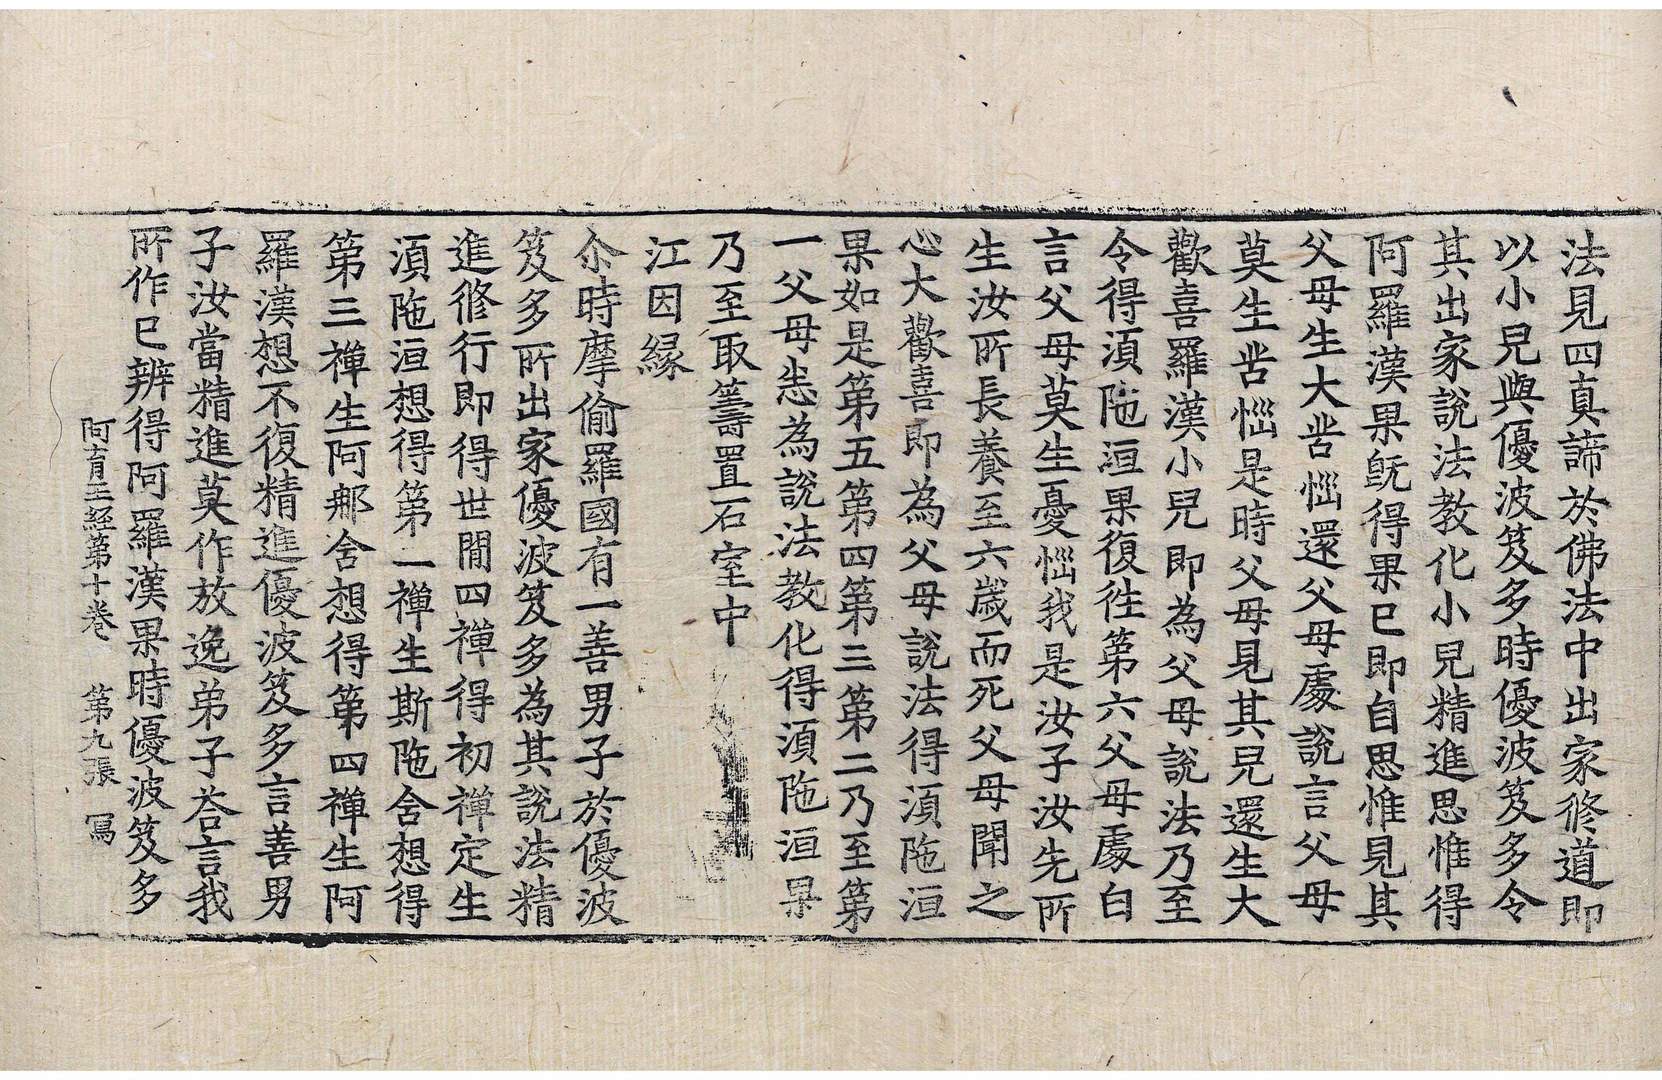 法見四真諦於佛法中出家修道即
以小兒與優波笈多時優波笈多令
其出家說法教化小兒精進思惟得
阿羅漢果旣得果已即自思惟見其
父母生大苦惱還父母處說言父母
莫生苦惱是時父母見其兒還生大
歡喜羅漢小兒即為父母說法乃至
令得湏陁洹果復往第六父母處白
言父母莫生憂惱我是汝子汝先所
生汝所長養至六歲而死父母聞之
心大歡喜即為父母說法得湏陁洹
果如是第五第四第三第二乃至第
一父母恙為說法教化得湏陁洹果
乃至取籌置石室中
江因縁
尒時摩偷羅國有一善男子於優波
笈多所出家優波笈多為其說法精
進修行即得世間四禪得初禪定生
湏陁洹想得第二禪生斯陁含想得
第三禪生阿那含想得第四禪生阿
羅漢想不復精進優波笈多言善男
子汝當精進莫作放逸弟子荅言我
所作已辨得阿羅漢果時優波笈多
阿育王經第十卷 第九張 冩